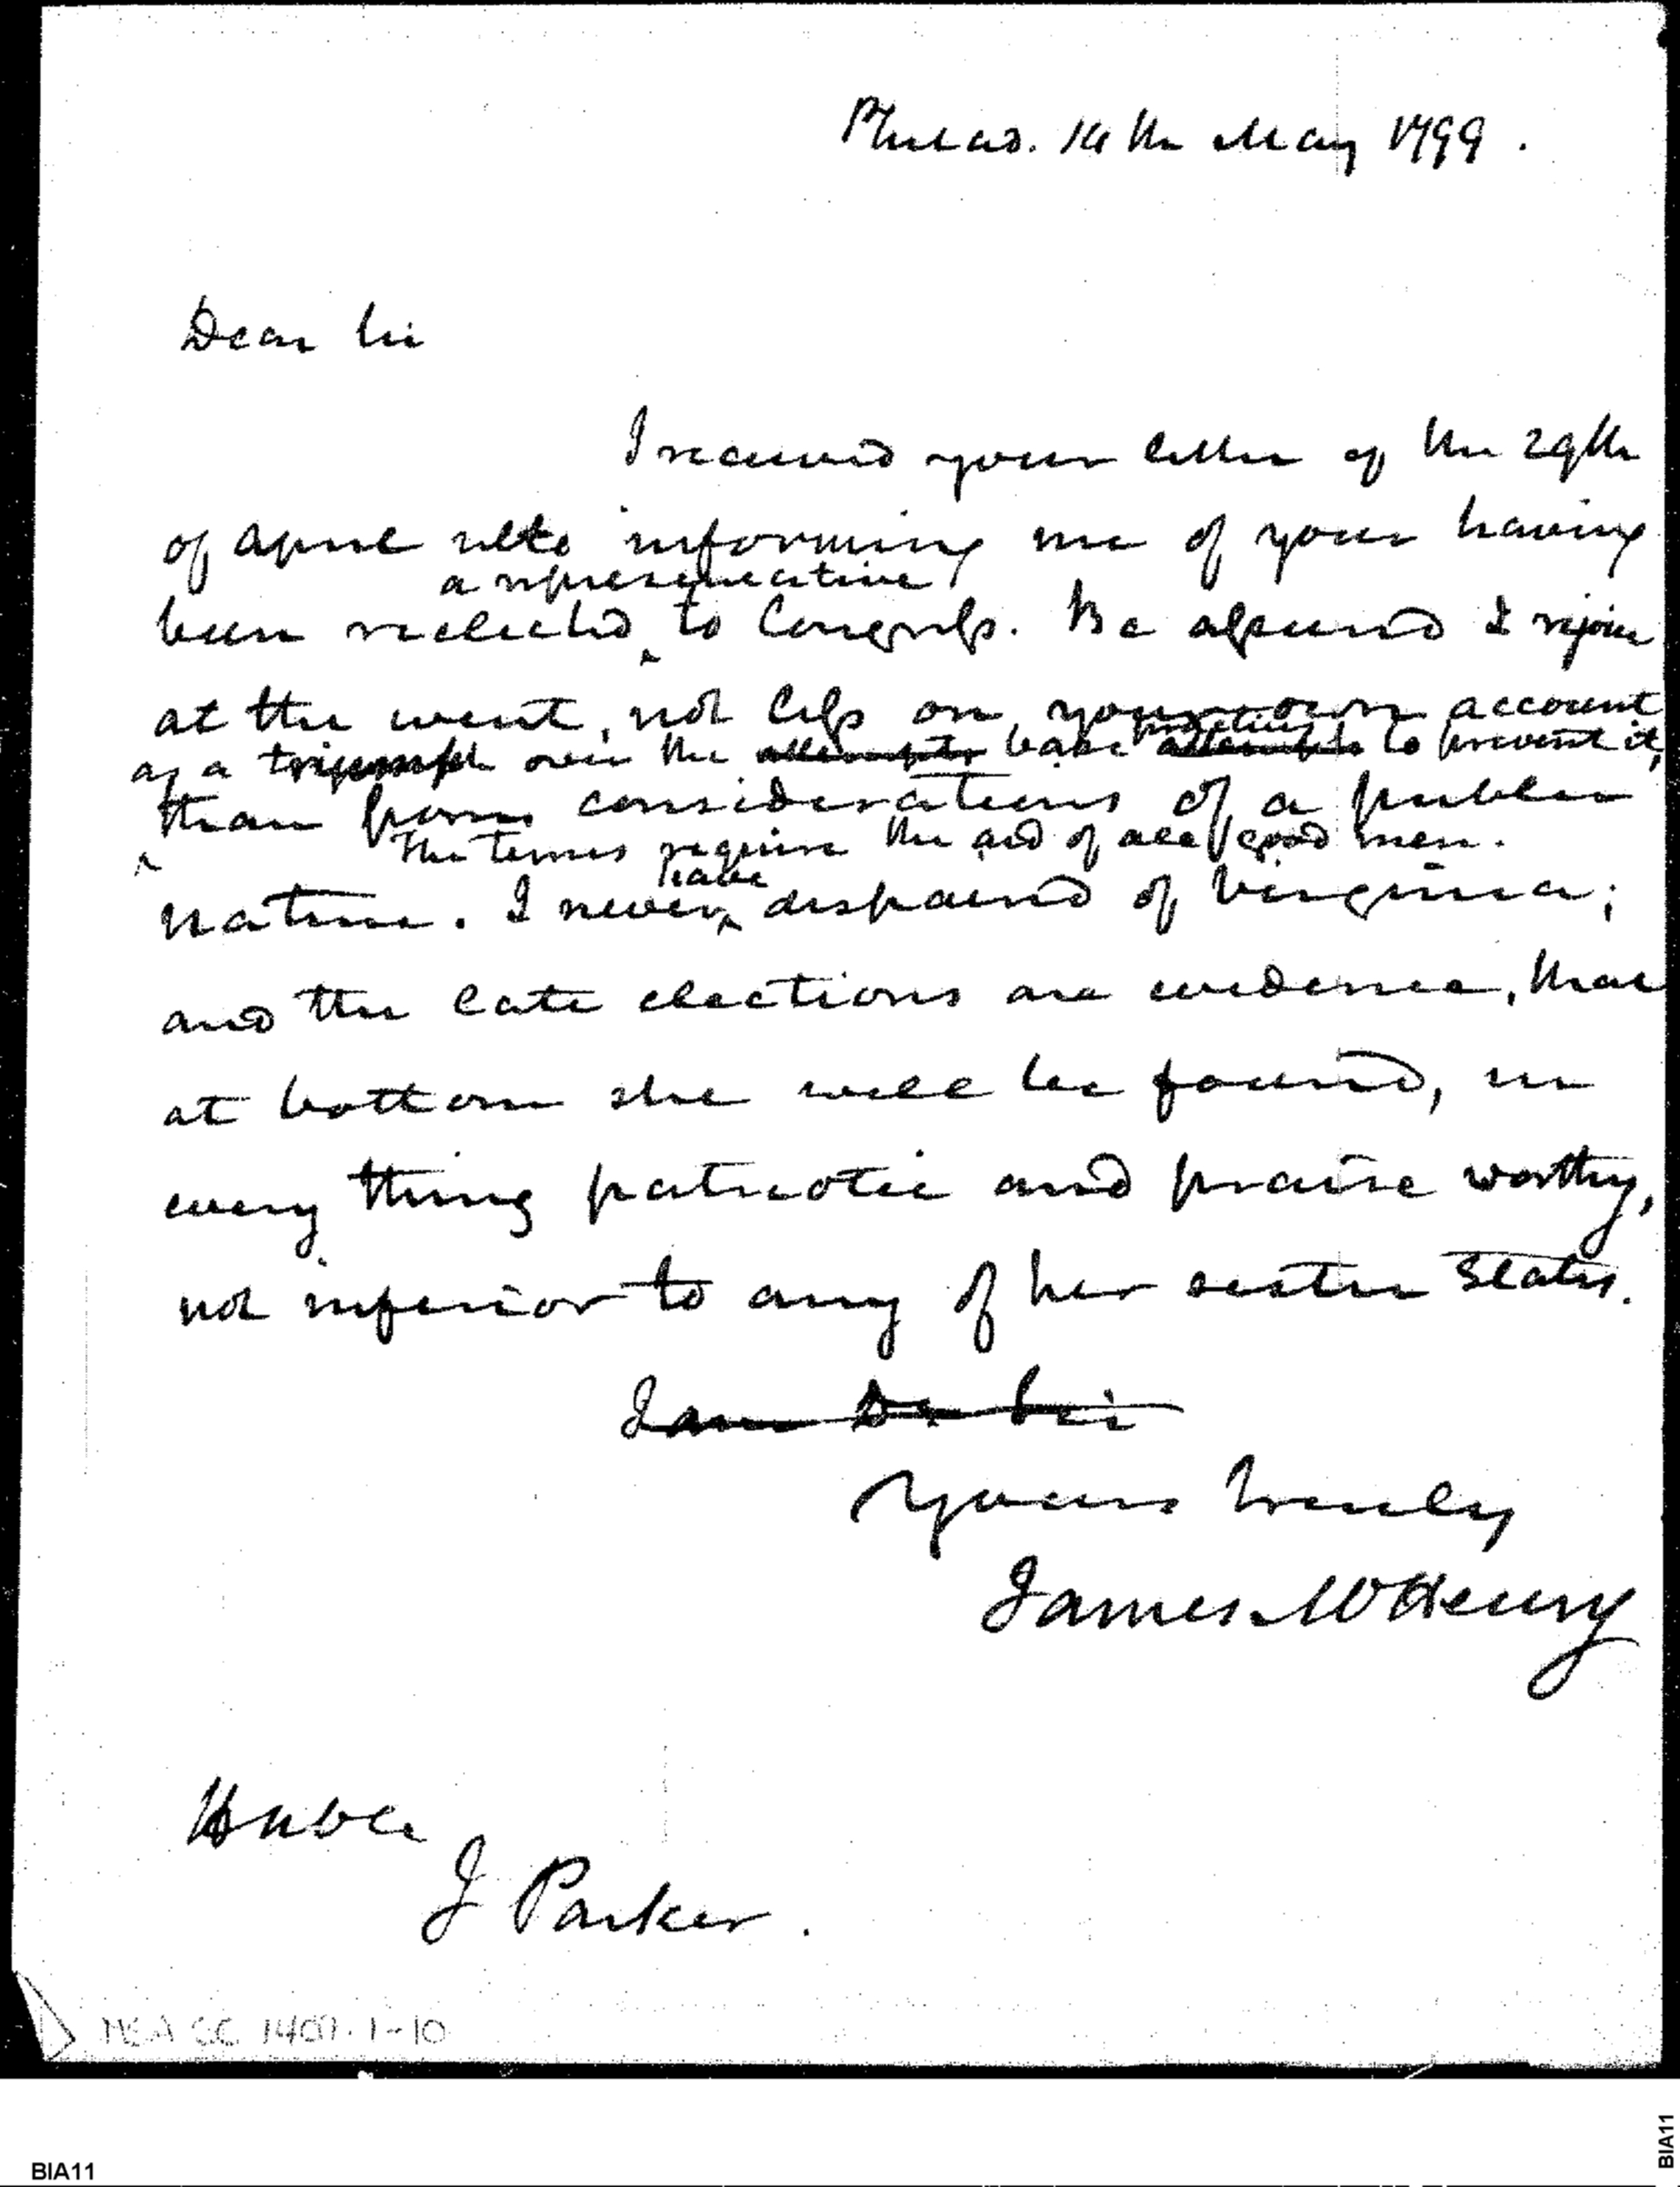 Philad. 14th May 1799.
Dear Sir
I received your letter of the 29th
of April ulto informing me of your having
a representative
been reelected to Congress. Be assured I rejoice
at the event, not less on your own account
as a triumph over the attempts base practices attempts to prevent it,
than from considerations of a public
The times require the aid of all good men.
have
nature. I never despaired of Virginia;
and the late elections are evidence, that
at bottom she will be found, in
every thing patriotic and praise worthy,
not inferior to any of her sister States.
I am Dr Sir
Yours truly
James McHenry
Honble
J Parker.
MSA SC 1407-1-10
BIA11
BIA11